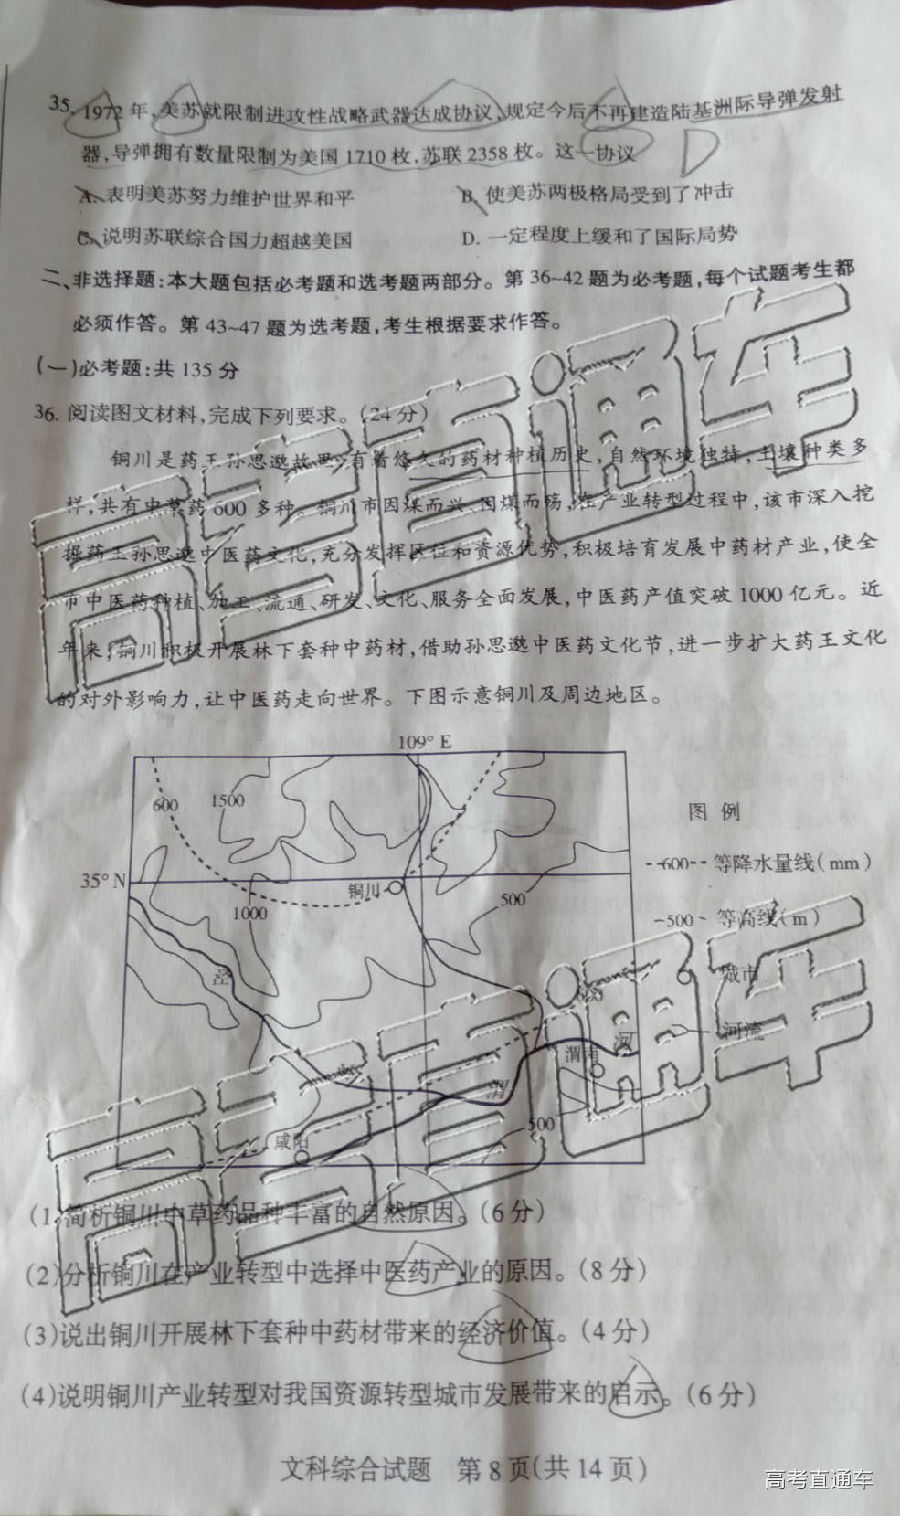 35. 1972 年,美苏就限制进攻性战略武器达成协议,规定今后不再建造陆基洲际导弹发射
器,导弹拥有数量限制为美国 1710 枚,苏联 2358 枚。这一协议
D
A. 表明美苏努力维护世界和平 B. 使美苏两极格局受到了冲击
C. 说明苏联综合国力超越美国 D. 一定程度上缓和了国际局势
二、非选择题:本大题包括必考题和选考题两部分。第 36~42 题为必考题,每个试题考生都
必须作答。第 43~47 题为选考题,考生根据要求作答。
(一)必考题:共 135 分
36. 阅读图文材料,完成下列要求。(24 分)
铜川是药王孙思邈故里,有着悠久的药材种植历史,自然环境独特,土壤种类多
样,共有中草药 600 多种。铜川市因煤而兴、因煤而殇,在产业转型过程中,该市深入挖
掘药王孙思邈中医药文化,充分发挥区位和资源优势,积极培育发展中药材产业,使全
市中医药种植、加工、流通、研发、文化、服务全面发展,中医药产值突破 1000 亿元。近
年来,铜川积极开展林下套种中药材,借助孙思邈中医药文化节,进一步扩大药王文化
的对外影响力,让中医药走向世界。下图示意铜川及周边地区。
高考直通车
109° E
600 1500
图 例
--600-- 等降水量线(mm)
35° N
铜川
1000
500
-500- 等高线(m)
泾
城市
河
河流
渭南
渭
500
咸阳
高考直通车
(1)简析铜川中草药品种丰富的自然原因。(6 分)
(2)分析铜川在产业转型中选择中医药产业的原因。(8 分)
(3)说出铜川开展林下套种中药材带来的经济价值。(4 分)
(4)说明铜川产业转型对我国资源转型城市发展带来的启示。(6 分)
文科综合试题 第 8 页(共 14 页)
高考直通车